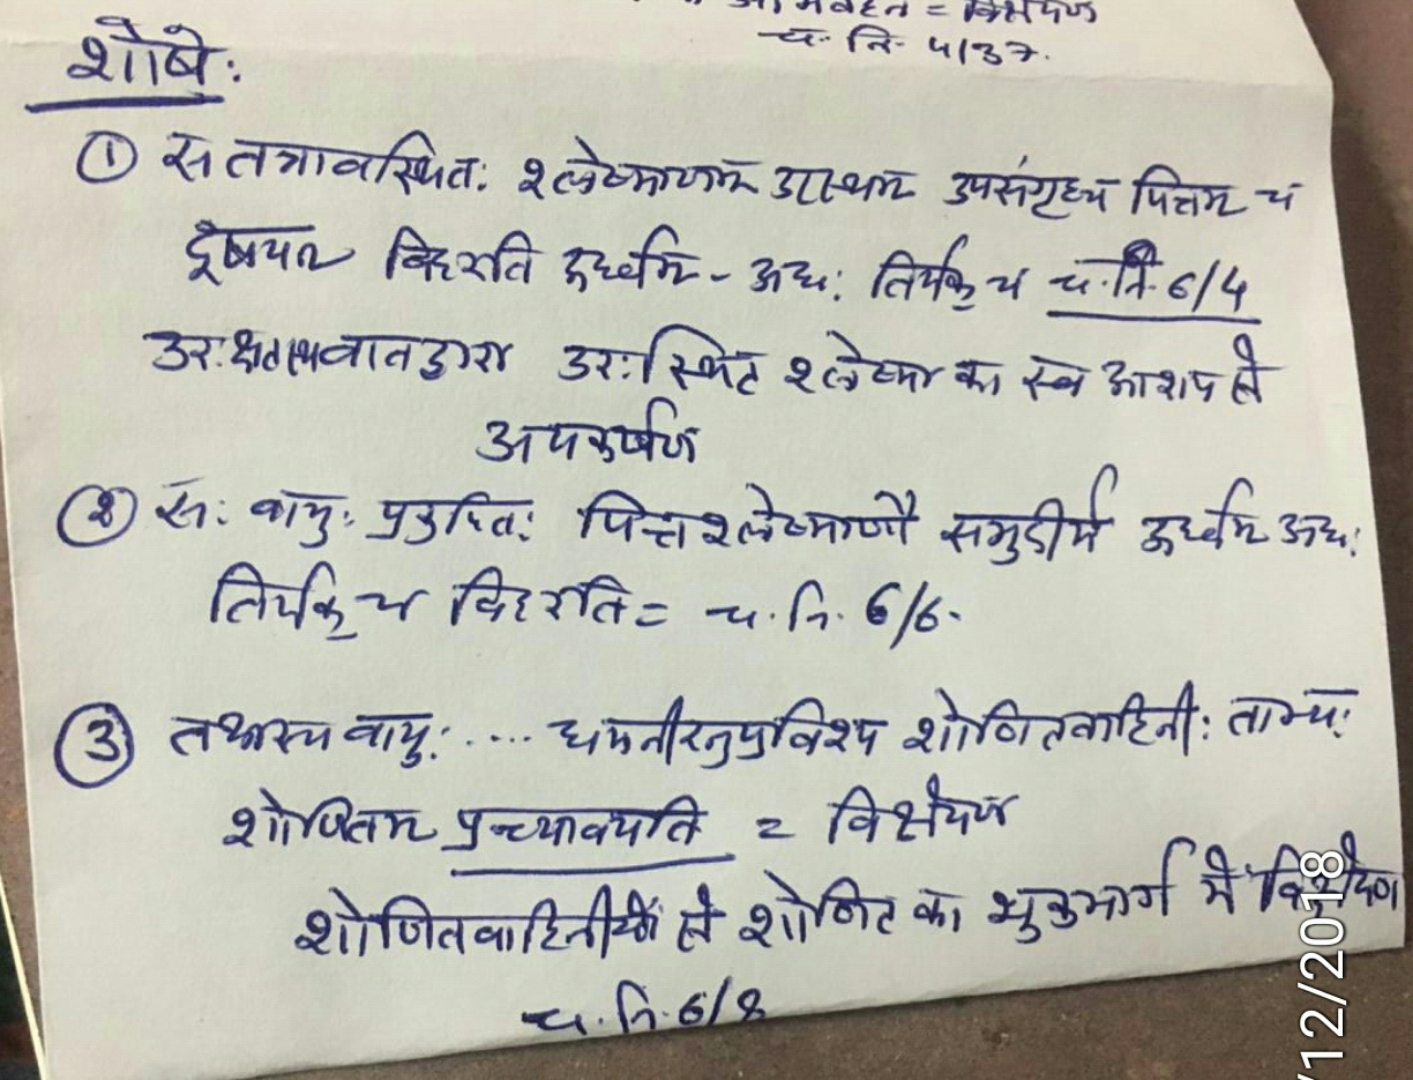 = विक्षेपण
च. नि. 5/37.
शोषे:
① स तत्रावस्थितः श्लेष्माणम उरःस्थम उपसंगृह्य पित्तम च
दूषयन विहरति ऊर्ध्वम - अधः तिर्यक् च च. नि. 6/4
उरःक्षतस्थवात द्वारा उरःस्थित श्लेष्मा का स्व आशय से
अपकर्षण
② सः वायुः प्रकुपितः पित्तश्लेष्माणौ समुदीर्य ऊर्ध्वम अधः
तिर्यक् च विहरति = च. नि. 6/6.
③ तथास्य वायुः .... धमनीरनुप्रविश्य शोणितवाहिनीः ताभ्यः
शोणितम प्रच्यावयति = विक्षेपण
शोणितवाहिनीयों से शोणित का शुक्रमार्ग में विक्षेपण
च. नि. 6/8
/12/2018